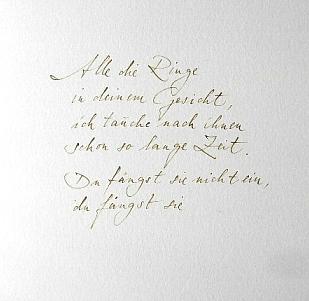 Alle die Ringe
in deinem Gesicht,
ich tauche nach ihnen
schon so lange Zeit.
Du fängst sie nicht ein,
du fängst sie